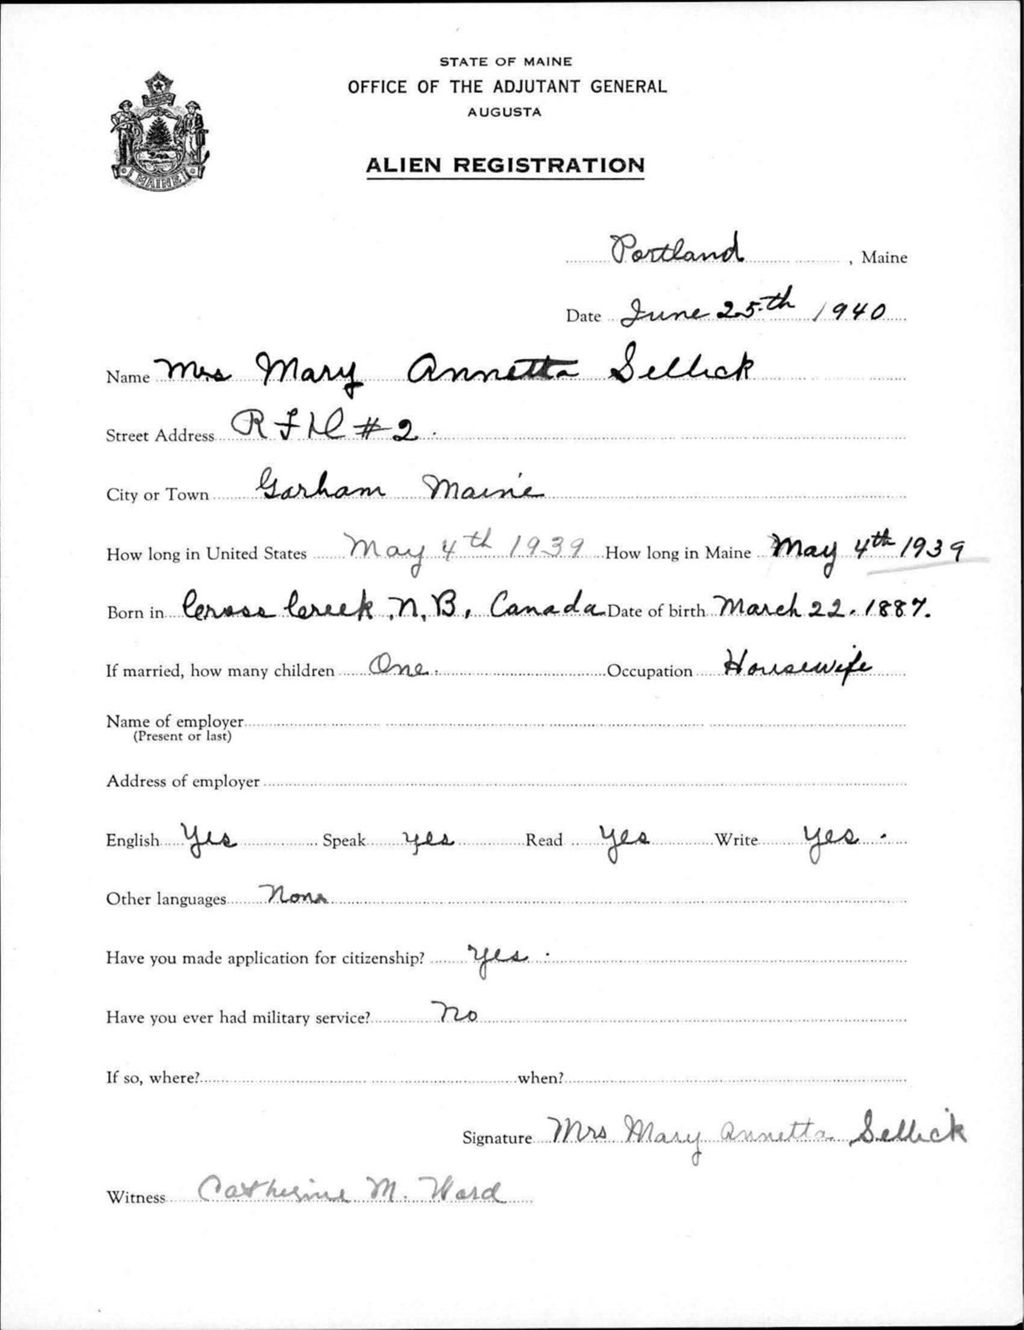 STATE OF MAINE
OFFICE OF THE ADJUTANT GENERAL
AUGUSTA
ALIEN REGISTRATION
MAINE
Portland, Maine
Date June 25th 1940
Name Mrs Mary Annetta Sellick
Street Address RFD #2.
City or Town Gorham Maine
How long in United States May 4th 1939 How long in Maine May 4th 1939
Born in Cross Creek, N.B, Canada Date of birth March 22. 1887.
If married, how many children One. Occupation Housewife
Name of employer
(Present or last)
Address of employer
English Yes Speak yes Read Yes Write yes.
Other languages None
Have you made application for citizenship? Yes.
Have you ever had military service? No
If so, where? when?
Signature Mrs Mary Annetta Sellick
Witness Catherine M. Ward